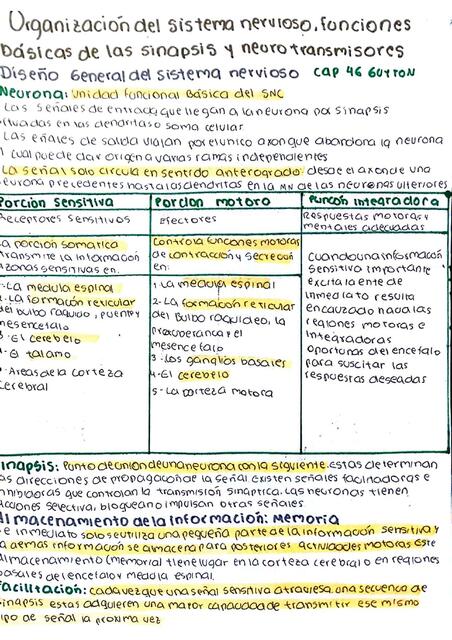 Organización del sistema nervioso, funciones
básicas de las sinapsis y neurotransmisores
Diseño General del sistema nervioso CAP 46 GUYTON
Neurona: unidad funcional Básica del SNC
Las señales de entrada que llegan a la neurona por sinapsis
situadas en las dendritas o soma celular
Las eñales de salida viajan por el unico axon que abandona la neurona
l cual puede dar origen a varias ramas independientes
La señal solo circula en sentido anterogrado: desde el axon de una
eurona precedentes hasta las dendritas en la MN de las neuronas ulteriores
Porción Sensitiva
Receptores Sensitivos
la porción somatica
transmite la información
a zonas sensitivas en:
1-La medula espinal
2-La formación reticular
del bulbo raquido, puente y
mesencefalo
3-El cerebelo
4-El talamo
5-Areas de la corteza
Cerebral
Porcion motora
Efectores
Controla funciones motoras
de contracción y secreción
en:
1-La medula espinal
2-La formación reticular
del Bulbo raquideo, la
protuberancia y el
mesencefalo
3-Los ganglios basales
4-El cerebelo
5-La corteza motora
Porción integradora
Respuestas motoras y
mentales adecuadas
Cuando una información
Sensitiva importante
excita la mente de
inmediato resulta
encauzado hacia las
regiones motoras e
integradoras
oportunas del encefalo
para suscitar las
respuestas deseadas
inapsis: Punto de union de una neurona con la siguiente. estas determinan
as direcciones de propagación de la señal. Existen señales facilitadoras e
inhibidoras que controlan la transmisión sinaptica. Las neuronas tienen
acciones selectiva, bloquean o impulsan otras señales
Almacenamiento de la Información: Memoria
e inmediato solo se utiliza una pequeña parte de la información sensitiva y
la demas información se almacena para posteriores actividades motoras Este
Almacenamiento (memoria) tiene lugar en la corteza cerebral o en regiones
basales del encefalo y medula espinal.
Facilitación: cada vez que una señal sensitiva atraviesa una secuencia de
sinapsis estas adquieren una mayor capacidad de transmitir ese mismo
tipo de señal la proxima vez